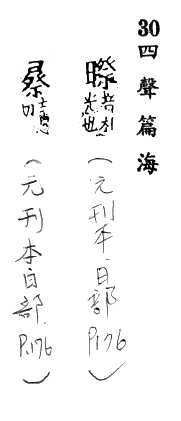 30四聲篇海
暩 光也 (元刊本.日部 P176)
(元刊本日部. P.176)